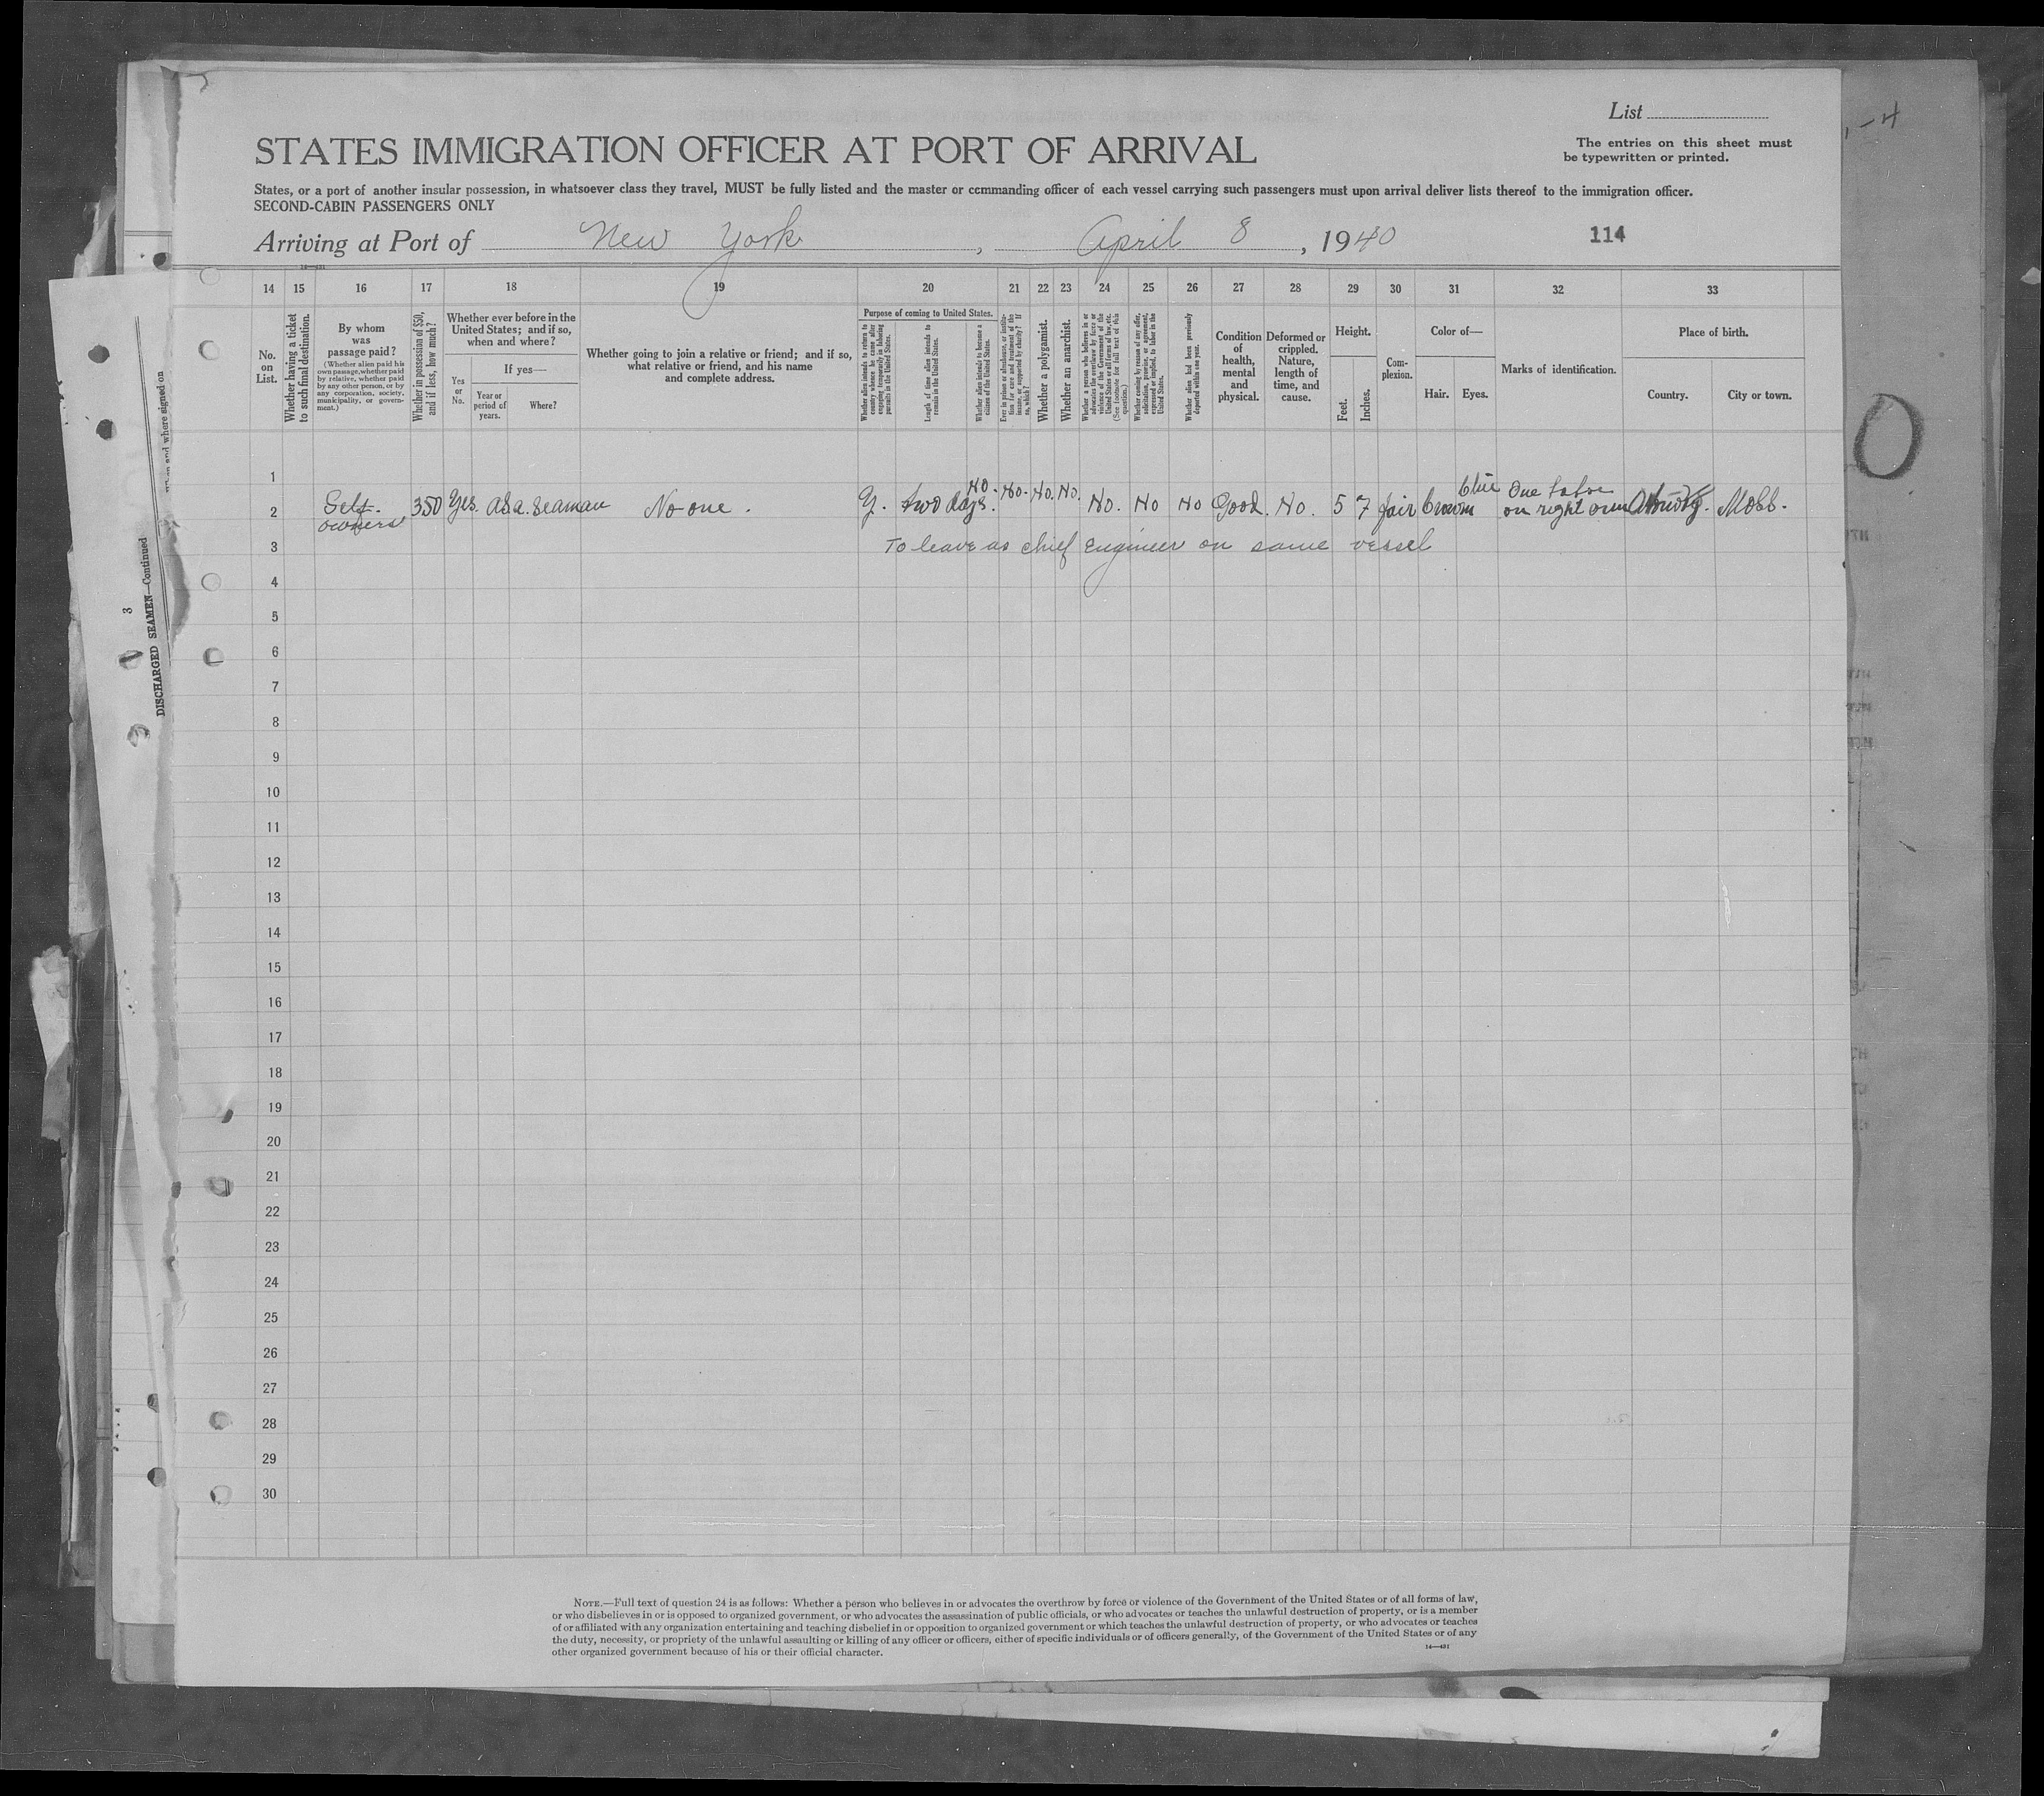 List
The entries on this sheet must
be typewritten or printed.
STATES IMMIGRATION OFFICER AT PORT OF ARRIVAL
States, or a port of another insular possession, in whatsoever class they travel, MUST be fully listed and the master or commanding officer of each vessel carrying such passengers must upon arrival deliver lists thereof to the immigration officer.
SECOND-CABIN PASSENGERS ONLY
Arriving at Port of New York, April 8, 1940
114
14 15 16 17 18 19 20 21 22 23 24 25 26 27 28 29 30 31 32 33
No. on List.
Whether having a ticket to such final destination.
By whom was passage paid?
(Whether alien paid his own passage, whether paid by relative, whether paid by any other person, or by any corporation, society, municipality, or government.)
Whether in possession of $50, and if less, how much?
Whether ever before in the United States; and if so, when and where?
Yes or No.
If yes—
Year or period of years.
Where?
Whether going to join a relative or friend; and if so, what relative or friend, and his name and complete address.
Purpose of coming to United States.
Whether alien intends to return to country whence he came after engaging temporarily in laboring pursuits in the United States.
Length of time alien intends to remain in the United States.
Whether alien intends to become a citizen of the United States.
Ever in prison or almshouse, or institution for care and treatment of the insane, or supported by charity? If so, which?
Whether a polygamist.
Whether an anarchist.
Whether a person who believes in or advocates the overthrow by force or violence of the Government of the United States or all forms of law, etc. (See footnote for full text of this question.)
Whether coming by reason of any offer, solicitation, promise, or agreement, expressed or implied, to labor in the United States.
Whether alien had been previously deported within one year.
Condition of health, mental and physical.
Deformed or crippled. Nature, length of time, and cause.
Height.
Feet.
Inches.
Complexion.
Color of—
Hair.
Eyes.
Marks of identification.
Place of birth.
Country.
City or town.
1
2 Self. owners 350 Yes. as a. Seaman No one. Y. two days. No. No. No. No. No. No No Good. No. 5 7 fair brown blue One on right arm
3 To leave as chief Engineer on same vessel
4
5
6
7
8
9
10
11
12
13
14
15
16
17
18
19
20
21
22
23
24
25
26
27
28
29
30
NOTE.—Full text of question 24 is as follows: Whether a person who believes in or advocates the overthrow by force or violence of the Government of the United States or of all forms of law,
or who disbelieves in or is opposed to organized government, or who advocates the assassination of public officials, or who advocates or teaches the unlawful destruction of property, or is a member
of or affiliated with any organization entertaining and teaching disbelief in or opposition to organized government or which teaches the unlawful destruction of property, or who advocates or teaches
the duty, necessity, or propriety of the unlawful assaulting or killing of any officer or officers, either of specific individuals or of officers generally, of the Government of the United States or of any
other organized government because of his or their official character.
14—481
3
DISCHARGED SEAMEN—Continued
and where signed on